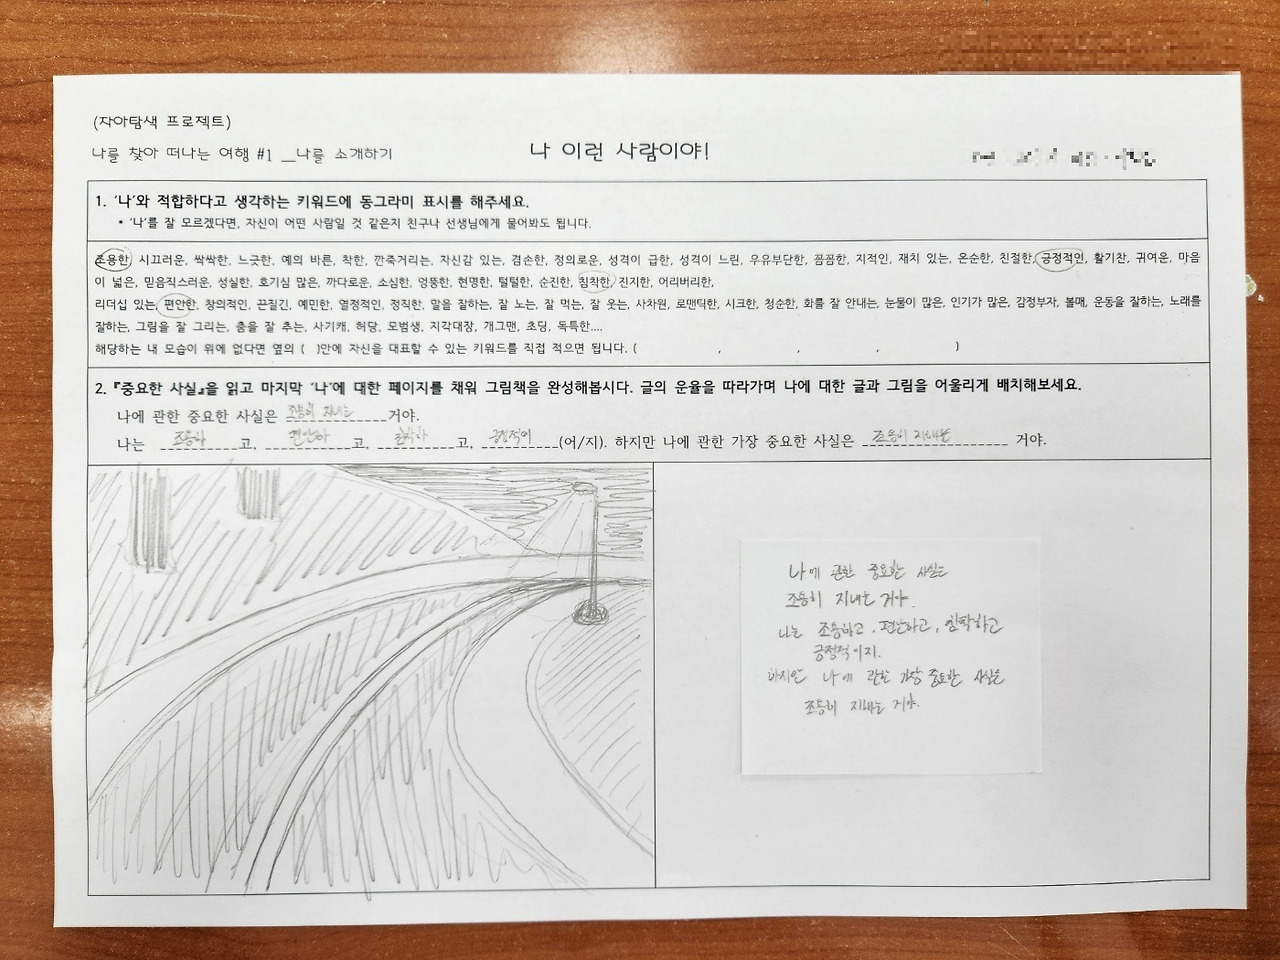 (자아탐색 프로젝트)
나를 찾아 떠나는 여행 #1 __나를 소개하기
나 이런 사람이야!
1. '나'와 적합하다고 생각하는 키워드에 동그라미 표시를 해주세요.
* '나'를 잘 모르겠다면, 자신이 어떤 사람일 것 같은지 친구나 선생님에게 물어봐도 됩니다.
조용한, 시끄러운, 싹싹한, 느긋한, 예의 바른, 착한, 깐죽거리는, 자신감 있는, 겸손한, 정의로운, 성격이 급한, 성격이 느린, 우유부단한, 꼼꼼한, 지적인, 재치 있는, 온순한, 친절한, 긍정적인, 활기찬, 귀여운, 마음
이 넓은, 믿음직스러운, 성실한, 호기심 많은, 까다로운, 소심한, 엉뚱한, 현명한, 털털한, 순진한, 침착한, 진지한, 어리버리한,
리더십 있는, 편안한, 창의적인, 끈질긴, 예민한, 열정적인, 정직한, 말을 잘하는, 잘 노는, 잘 먹는, 잘 웃는, 사차원, 로맨틱한, 시크한, 청순한, 화를 잘 안내는, 눈물이 많은, 인기가 많은, 감정부자, 볼매, 운동을 잘하는, 노래를
잘하는, 그림을 잘 그리는, 춤을 잘 추는, 사기캐, 허당, 모범생, 지각대장, 개그맨, 초딩, 독특한....
해당하는 내 모습이 위에 없다면 옆의 ( )안에 자신을 대표할 수 있는 키워드를 직접 적으면 됩니다. ( , , , )
2. 『중요한 사실』을 읽고 마지막 '나'에 대한 페이지를 채워 그림책을 완성해봅시다. 글의 운율을 따라가며 나에 대한 글과 그림을 어울리게 배치해보세요.
나에 관한 중요한 사실은 조용히 지내는 거야.
나는 조용하고, 편안하고, 침착하고, 긍정적이(어/지). 하지만 나에 관한 가장 중요한 사실은 조용히 지내는 거야.
나에 관한 중요한 사실은
조용히 지내는 거야.
나는 조용하고, 편안하고, 침착하고
긍정적이지.
하지만 나에 관한 가장 중요한 사실은
조용히 지내는 거야.